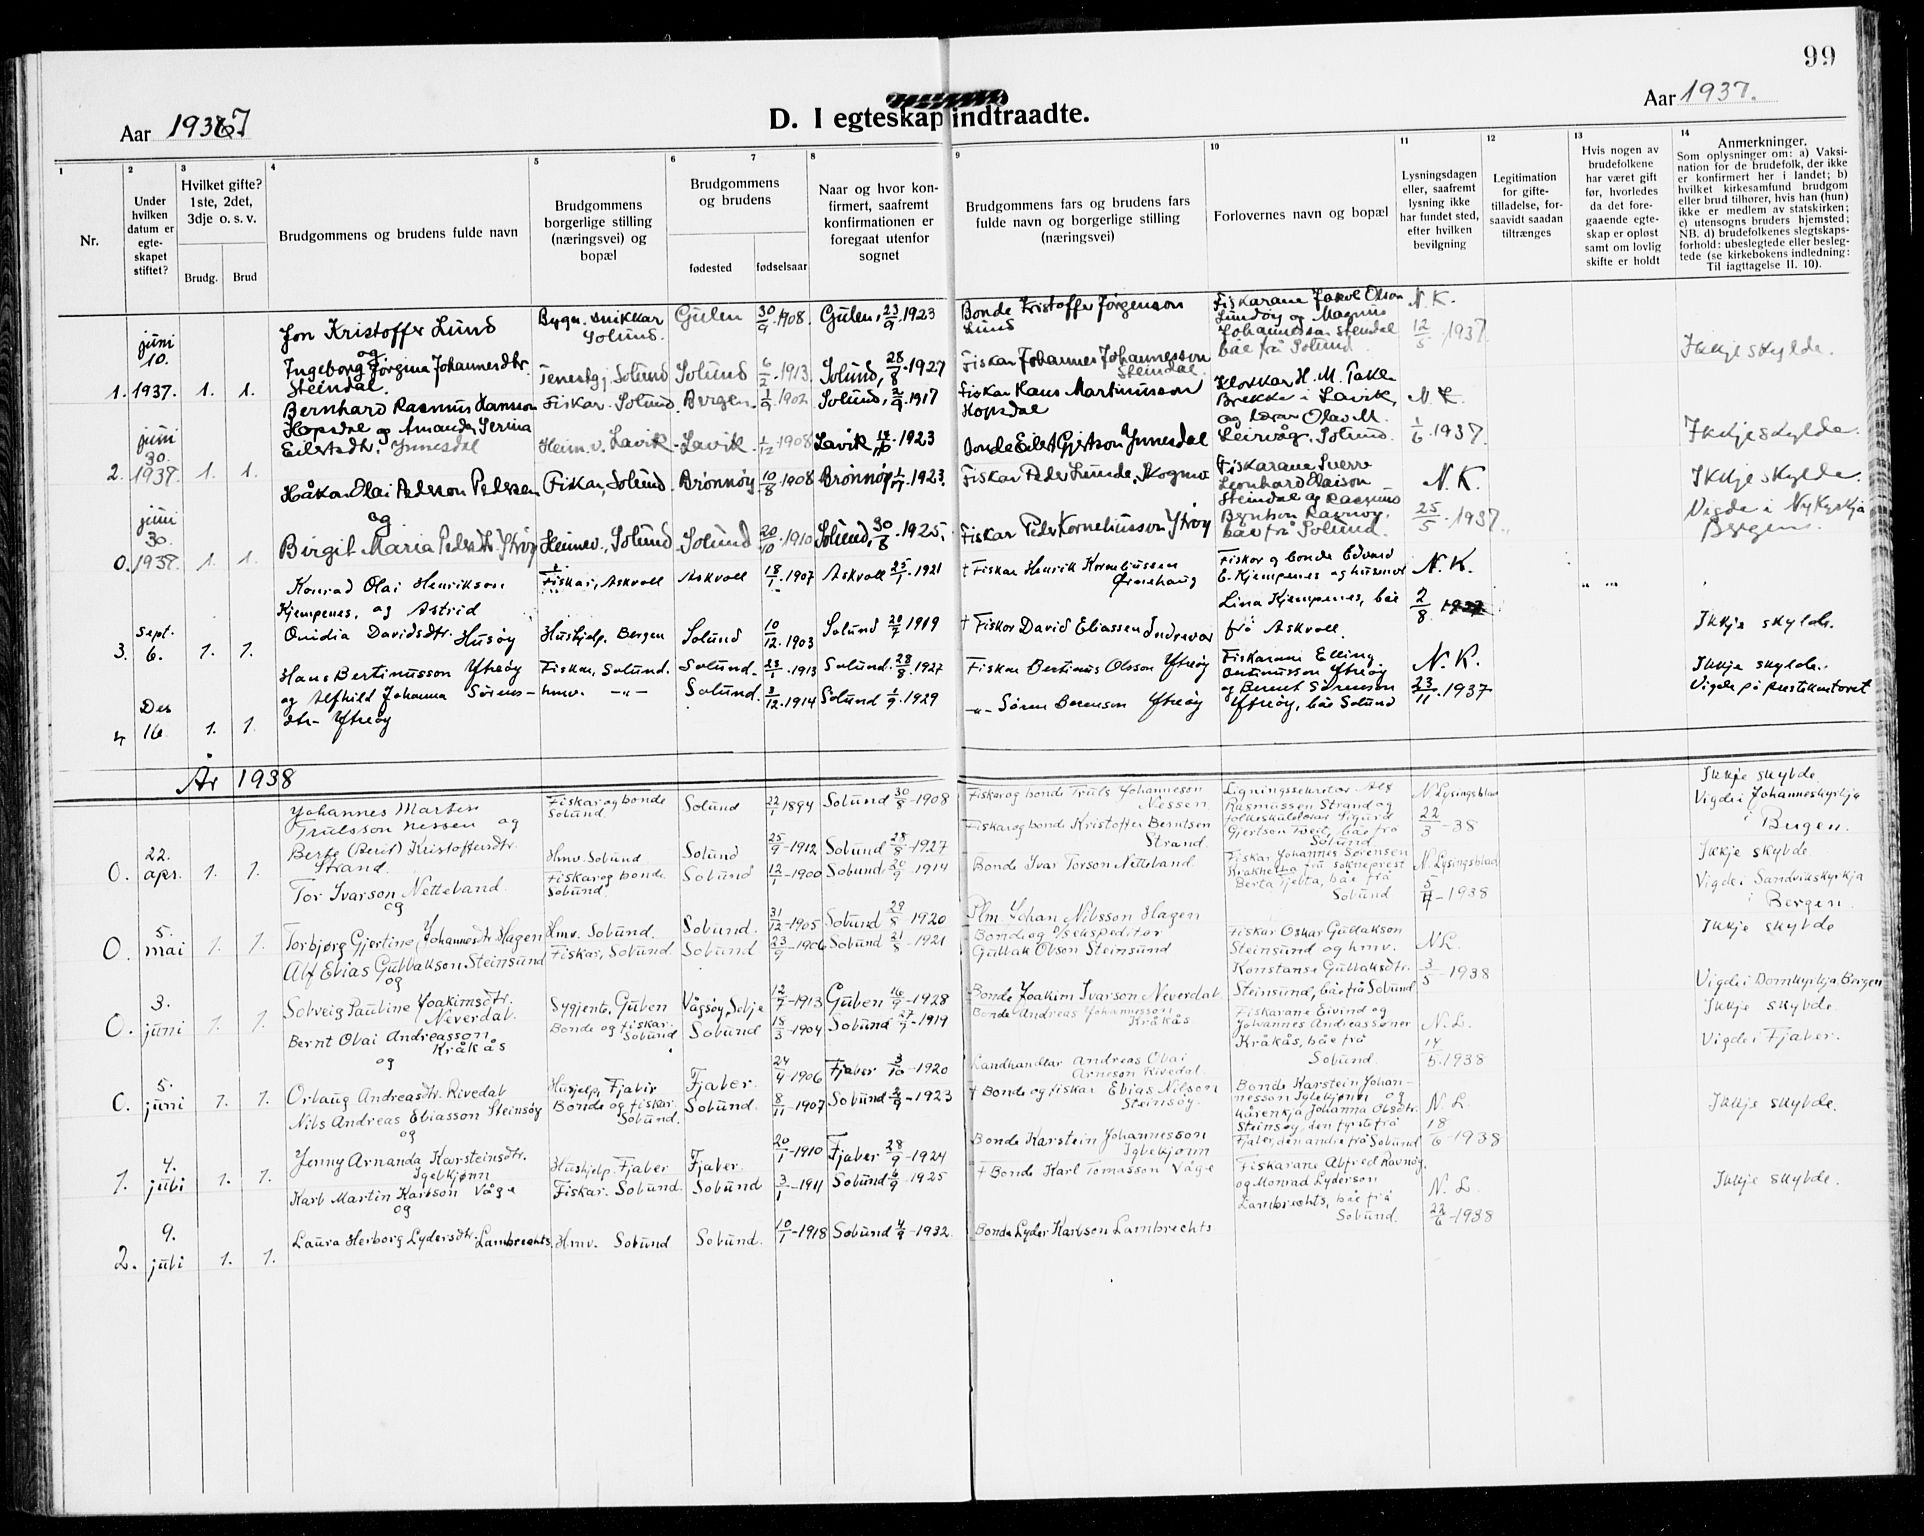 99
D. I egteskap indtraadte.
Aar 1937
Aar 1937.
1
2
3
4
5
6
7
8
9
10
11
12
13
14
Nr.
Under hvilken datum er egte-skapet stiftet?
Hvilket gifte? 1ste, 2det, 3dje o. s. v.
Brudg.
Brud
Brudgommens og brudens fulde navn
Brudgommens borgerlige stilling (næringsvei) og bopæl
Brudgommens og brudens
fødested
fødselsaar
Naar og hvor kon-firmert, saafremt konfirmationen er foregaat utenfor sognet
Brudgommens fars og brudens fars fulde navn og borgerlige stilling (næringsvei)
Forlovernes navn og bopæl
Lysningsdagen eller, saafremt lysning ikke har fundet sted, efter hvilken bevilgning
Legitimation for gifte-tilladelse, for-saavidt saadan tiltrænges
Hvis nogen av brudefolkene har været gift før, hvorledes da det fore-gaaende egte-skap er opløst samt om lovlig skifte er holdt
Anmerkninger.
Som oplysninger om: a) Vaksi-nation for de brudefolk, der ikke er konfirmert her i landet; b) hvilket kirkesamfund brudgom eller brud tilhører, hvis han (hun) ikke er medlem av statskirken; c) utensogns bruders hjemsted; NB. d) brudefolkenes slegtskaps-forhold: ubeslegtede eller besleg-tede (se kirkebokens indledning: Til iagttagelse II. 10).
1. juni 10. 1937. 1. 1.
Jon Kristoffer Lund
og
Ingeborg Jørgina Johannesdtr. Steindal.
Bygn. snikkar Solund.
Tenestgj. Solund
Gulen 30/9 1908. Gulen, 23/9 1923
Solund 6/2 1913. Solund, 28/8 1927
Bonde Kristoffer Jørgenson Lund
Fiskar Johannes Johannesson Steindal.
Fiskarane Jakob Olson Lundøy og Magnus Johannesson Steindal båe frå Solund
N. K. 12/5 1937.
Ikkje skylde.
2. juni 30. 1937. 1. 1.
Bernhard Rasmus Hansson Hopsdal og Amanda Serina Eilertsdtr. Ynnesdal
Fiskar. Solund.
Heimv. Lavik
Bergen. 1/9 1902 Solund, 2/9 1917
Lavik 1/12 1908 Lavik 17/6 1923
Fiskar Hans Martinusson Hopsdal
Bonde Eilert Gjertson Ynnesdal
Klokkar H. M. Takle Brekke i Lavik, og lærar Olav M. Leirvåg. Solund.
1/6 1937.
Ikkje skylde.
0. juni 30. 1937. 1. 1.
Håkon Olai Pederson Pedersen
og
Birgit Maria Pedersdtr. Ytrøy
Fiskar, Solund.
Heimev. Solund
Brønnøy 10/8 1908 Brønnøy 1/7 1923.
Solund 20/10 1910 Solund, 30/8 1925.
Fiskar Peder Lunde, Skogmo
Fiskar Peder Korneliusson Ytrøy
Fiskarane Sverre Leonhard Elaison Steindal og Rasmus Berntson Ravnøy. båe frå Solund.
N. K. 25/5 1937.
Ikkje skylde.
Vigde i Nykyrkja Bergen.
3. Sept. 6. 1. 1.
Konrad Olai Henrikson Kjempenes, og Astrid Ovidia Davidsdtr. Husøy
Fiskar, Askvoll
Hushjelp. Bergen
Askvoll 18/1 1907 Askvoll 25/1 1921
Solund 10/12 1903 Solund 20/7 1919
† Fiskar Henrik Korneliussen Ørnehaug
† Fiskar David Eliassen Indrevær
Fiskar og bonde Edvard E. Kjempenes og husmor Lina Kjempenes, båe frå Askvoll.
N. K. 2/8 1937
Ikkje skylde.
4 Des 16. 1. 1.
Hans Bertinusson Ytrøy og Alfhild Johanna Sørens-dtr. Ytrøy
Fiskar, Solund.
hmv. -"-
Solund 23/1 1913 Solund 28/8 1927
Solund. 3/12 1914 Solund 1/9 1929
Fiskar Bertinus Olsson Ytrøy
-"- Søren Berenson Ytrøy
Fiskarane Elling Bertinusson Ytrøy og Bernt Sørenson Ytrøy, båe Solund
N. K. 23/11 1937
Ikkje skylde.
Vigde på prestekontoret
År 1938
0. 22. apr. 1. 1.
Johannes Martin Trulsson Nessen og Berte (Berit) Kristoffersdtr. Strand.
Fiskar og bonde Solund
Hmv. Solund.
Solund 22/1 1894 Solund 30/8 1908
Solund 25/9 1912 Solund 28/8 1927
Fiskar og bonde Truls Johanneson Nessen
Fiskar og bonde Kristoffer Berntsen Strand.
Ligningssekretær Alf Rasmussen Strand og folkeskulelærar Sigurd Gjertson Tveit, båe frå Solund
N. Lysingsblad 22/3 38
Ikkje skylde.
Vigde i Johanneskyrkja i Bergen.
0. 5. mai 1. 1.
Tor Ivarson Netteland
og
Torbjørg Gjertine Johannesdtr Hagen
Fiskar og bonde Solund
Hmv. Solund.
Solund 12/1 1900 Solund 20/9 1914
Solund. 31/12 1905 Solund 29/8 1920
Bonde Ivar Torson Netteland
Plm. Johan Nilsson Hagen
Fiskar Johannes Sørensen Kråkhella, fru sokneprest Berta Tjelta, båe frå Solund
N. Lysingsblad 5/4 1938
Ikkje skylde
Vigde i Sandvikskyrkja i Bergen.
0. 3. juni 1. 1.
Alf Elias Gullakson Steinsund
og
Solveig Pauline Joakimsdtr. Neverdal.
Fiskar, Solund
Sygjente, Gulen
Solund 23/9 1906 Solund 21/8 1921
Vågsøy, Selje 12/7 1913 Gulen 16/9 1928
Bonde og D/S ekspeditør Gullak Olson Steinsund
Bonde Joakim Ivarson Neverdal
Fiskar Oskar Gullakson Steinsund og hmv. Konstanse Gullaksdtr. Steinsund, båe frå Solund
N. L. 3/5 1938
Ikkje skylde
Vigde i Domkyrkja Bergen
0. 5. juni 1. 1.
Bernt Olai Andreasson Kråkås
og
Orlaug Andreasdtr. Rivedal
Bonde og fiskar. Solund
Hushjelp, Fjaler
Solund 18/3 1904 Solund 27/7 1919
Fjaler. 24/4 1906 Fjaler 3/10 1920
Bonde Andreas Johannesson Kråkås
Landhandlar Andreas Olai Arneson Rivedal.
Fiskarane Eivind og Johannes Andreassøner Kråkås, båe frå Solund
N. L. 14/5. 1938
Ikkje skylde.
Vigde i Fjaler.
1. 4. juli 1. 1.
Nils Andreas Eliasson Steinsøy
og
Jenny Arnanda Karsteinsdtr. Iglekjønn
Bonde og fiskar. Solund.
Hushjelp. Fjaler
Solund. 8/11 1907 Solund 2/9 1923
Fjaler. 20/1 1910 Fjaler 28/9 1924
† Bonde og fiskar Elias Nilson Steinsøy.
Bonde Karstein Johannesson Iglekjønn
Bonde Karstein Johan-nesson Iglekjønn og kårenkja Johanna Olsdtr. Steinsøy, den fyrste frå Fjaler, den andre frå Solund
N. L. 18/6 1938
Ikkje skylde.
2. 9. juli 1. 1.
Karl Martin Karlson Våge
og
Laura Herborg Lydersdtr. Lambrechts
Fiskar. Solund.
Hmv. Solund
Solund 3/1 1911 Solund 6/9 1925
Solund. 10/1 1918 Solund 4/9 1932.
† Bonde Karl Tomasson Våge
Bonde Lyder Karlson Lambrechts
Fiskarane Alfred Ravnøy og Monrad Lyderson Lambrechts, båe frå Solund.
N. L. 22/6 1938
Ikkje skylde.